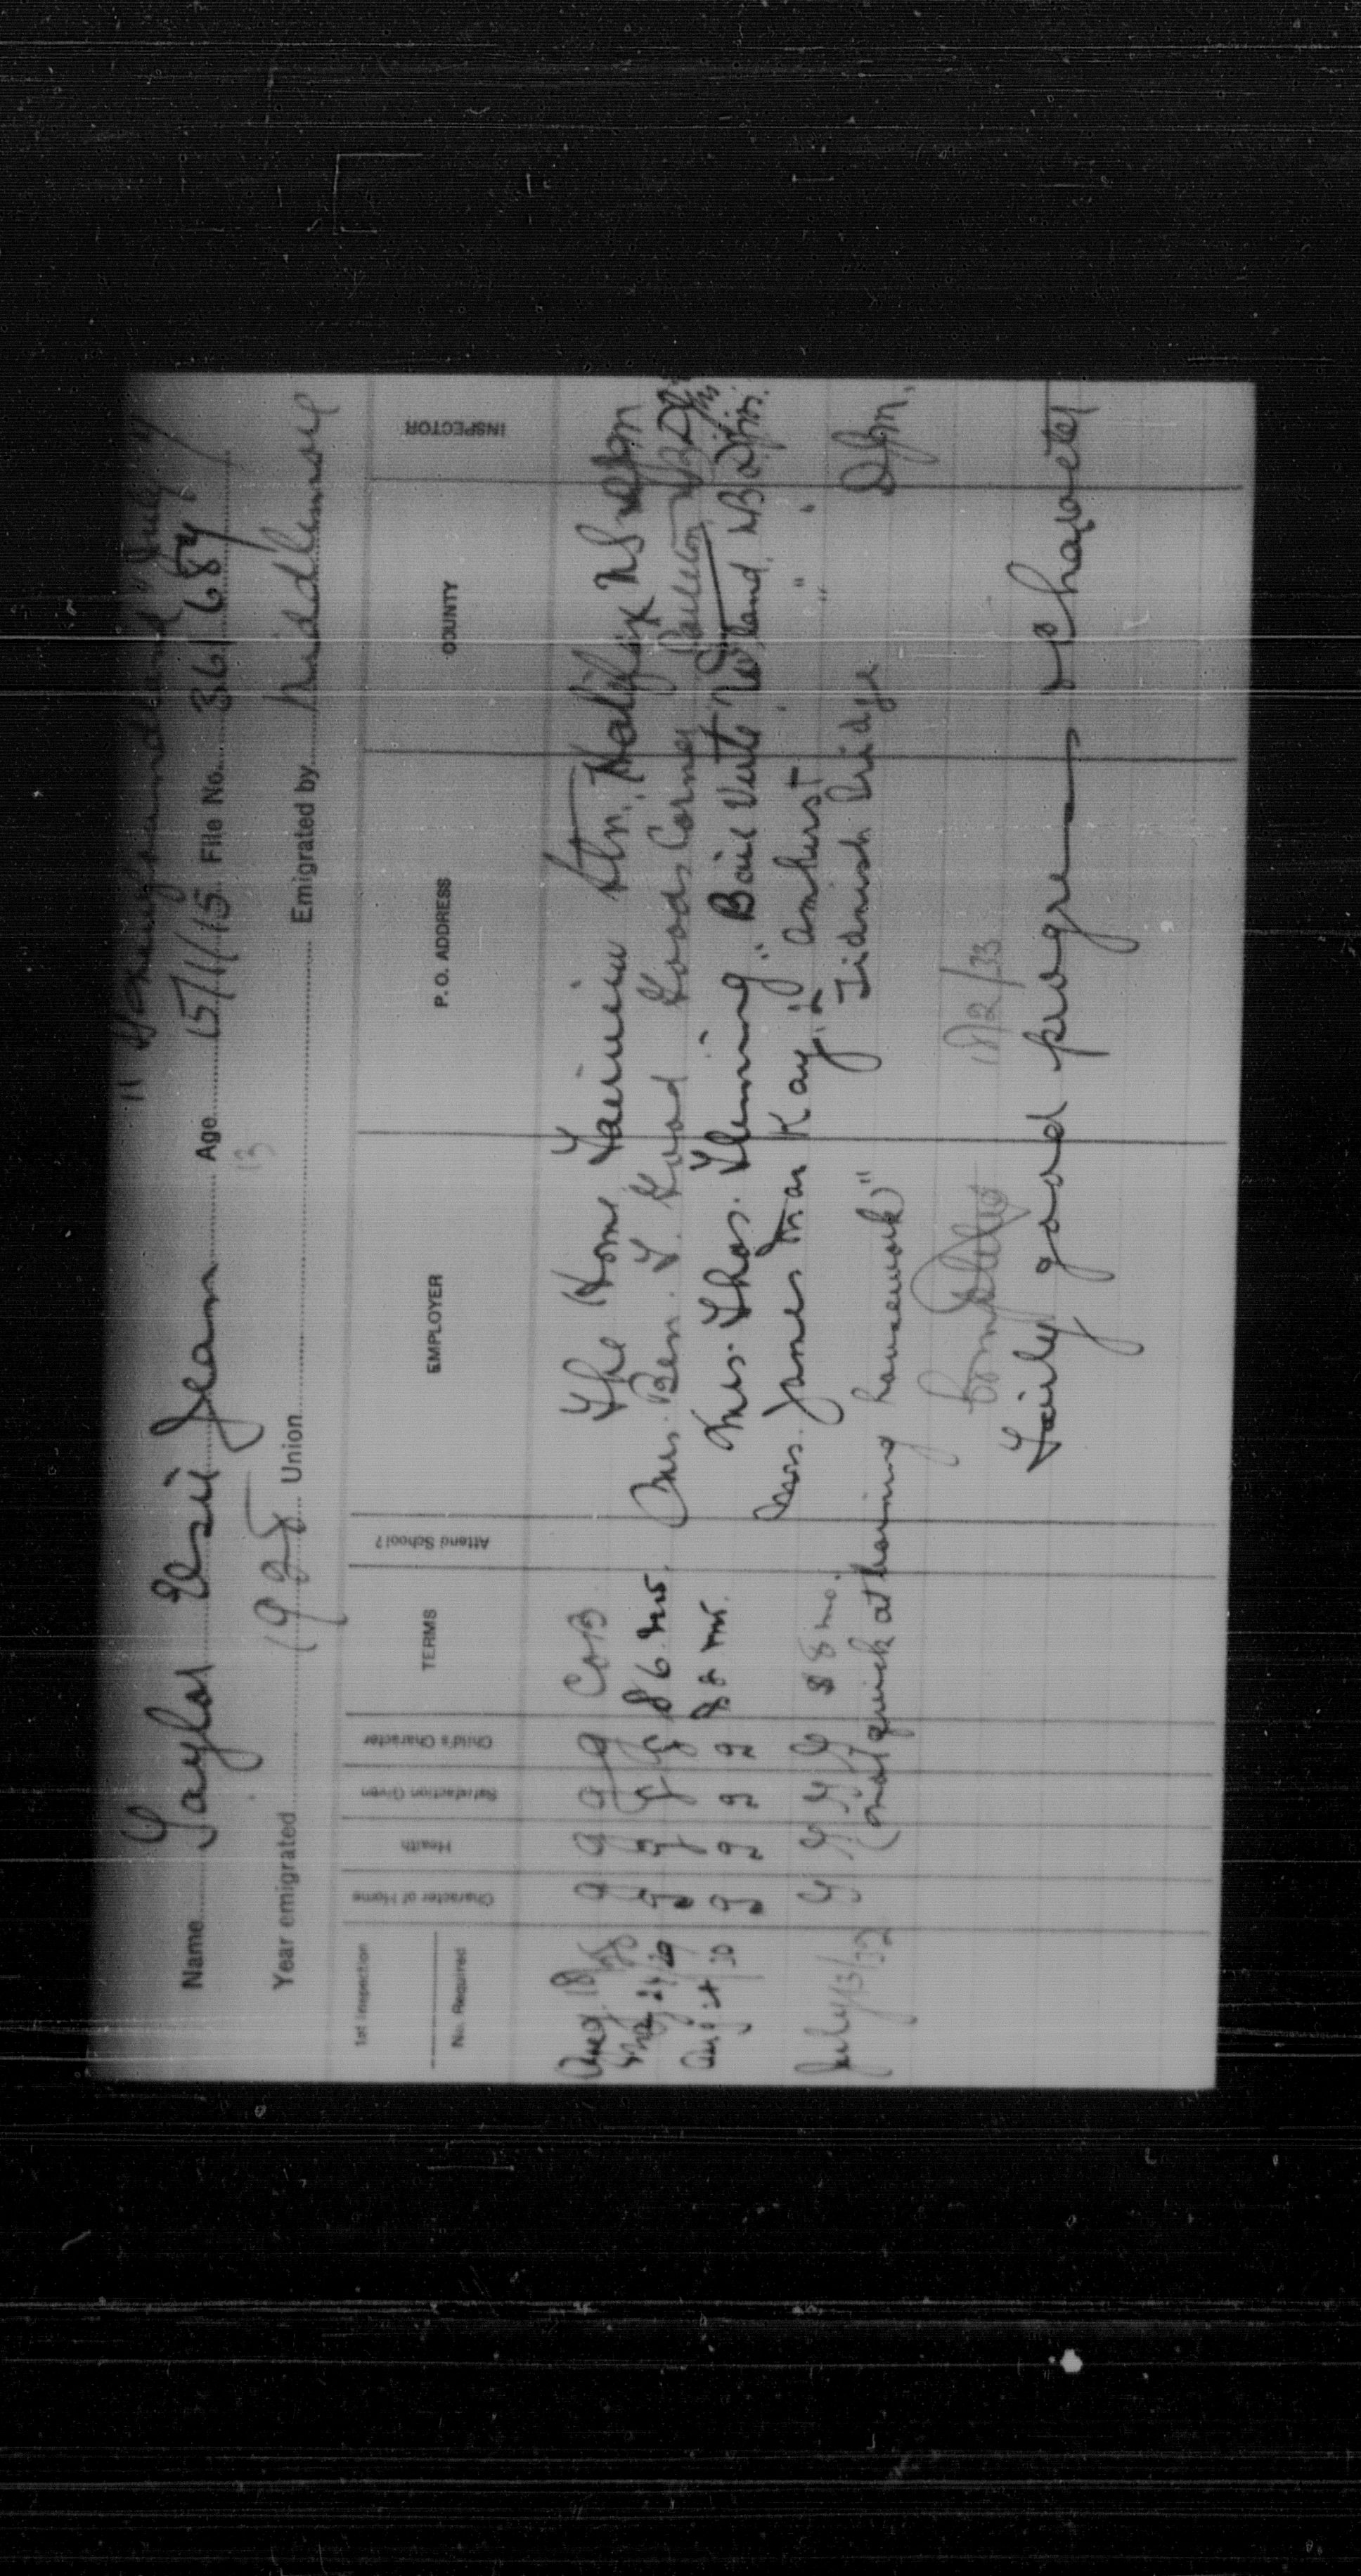 "Newfoundland" July
Name Taylor Elsie Jean Age 15/1/15 File No. 361687
13
Year emigrated 1928 Union Emigrated by Middlemore
1st Inspection
No. Required
Character of Home
Health
Satisfaction Given
Child's Character
TERMS
Attend School?
EMPLOYER
P. O. ADDRESS
COUNTY
INSPECTOR
Aug 18/28 g g g g COB The Home Fairview Stn. Halifax NS
May 24/29 g g g g $6 mo. Mrs. Ben. F. Good Goods Corner Carleton NB
Aug 21/30 g g g g $8 mo. Mrs. Thos. Fleming Baie Verte Rd Westland, NB
Mrs. James Mac Kay, Amherst " "
July 13/32 G G G G $8 mo. Tidnish Bridge DJM.
(not quick at learning housework)"
Completed 18/2/33
Fairly good progress & character